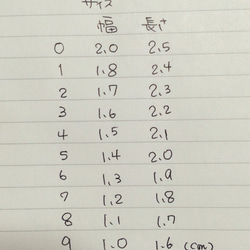 サイズ
幅 長さ
0 2.0 2.5
1 1.8 2.4
2 1.7 2.3
3 1.6 2.2
4 1.5 2.1
5 1.4 2.0
6 1.3 1.9
7 1.2 1.8
8 1.1 1.7
9 1.0 1.6 (cm)